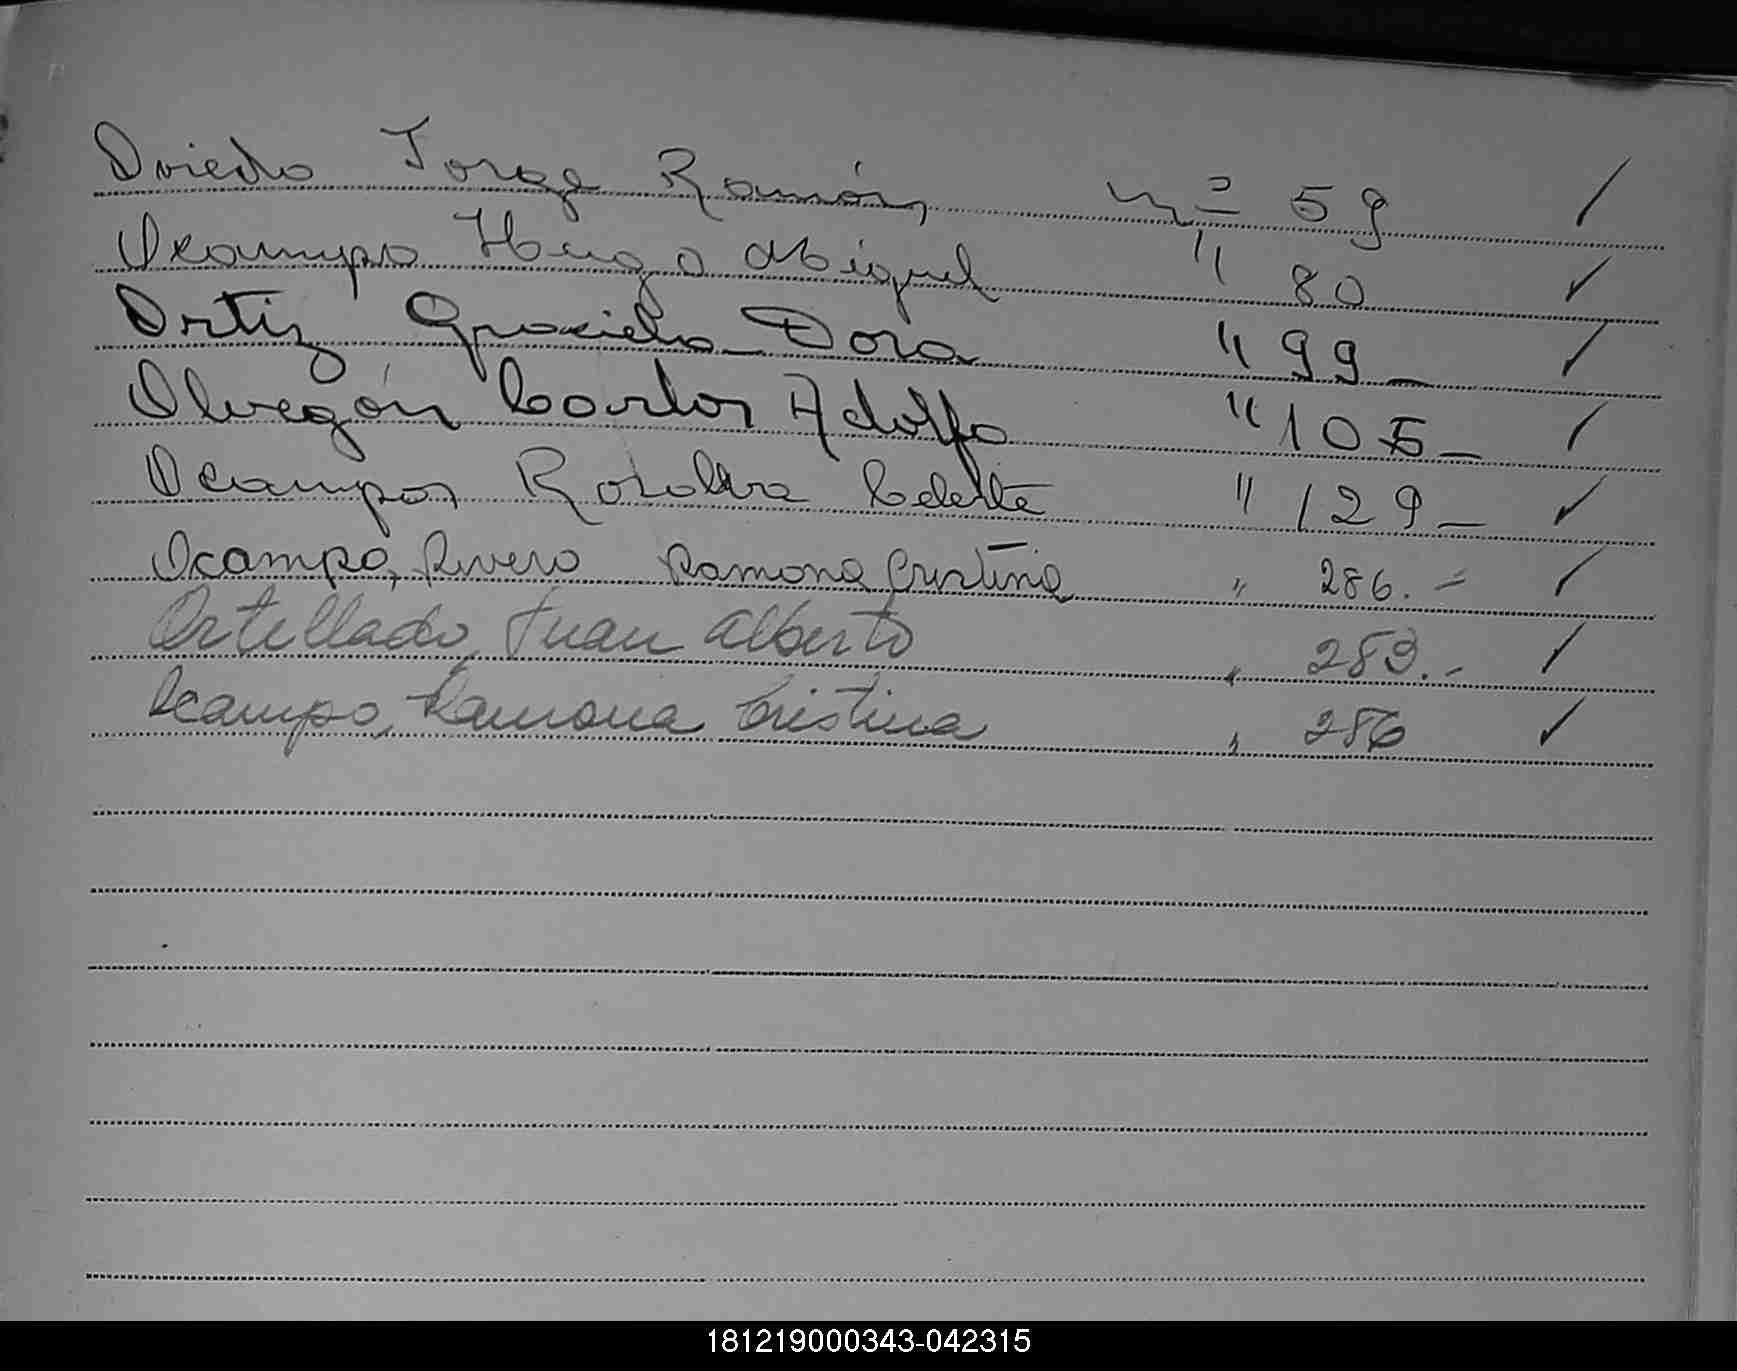 Oviedo Jorge Ramón nº 59 /
Ocampo Hugo Miguel " 80 ✓
Ortiz Graciela Dora " 99 _ /
Obregón Carlos Adolfo " 105 _ /
Ocampos Rosalba Celeste " 129 _ ✓
Ocampo, Rivero Ramona Cristina " 286. = /
Ortellado, Juan Alberto " 283.- /
Ocampo, Ramona Cristina " 286 ✓
181219000343-042315